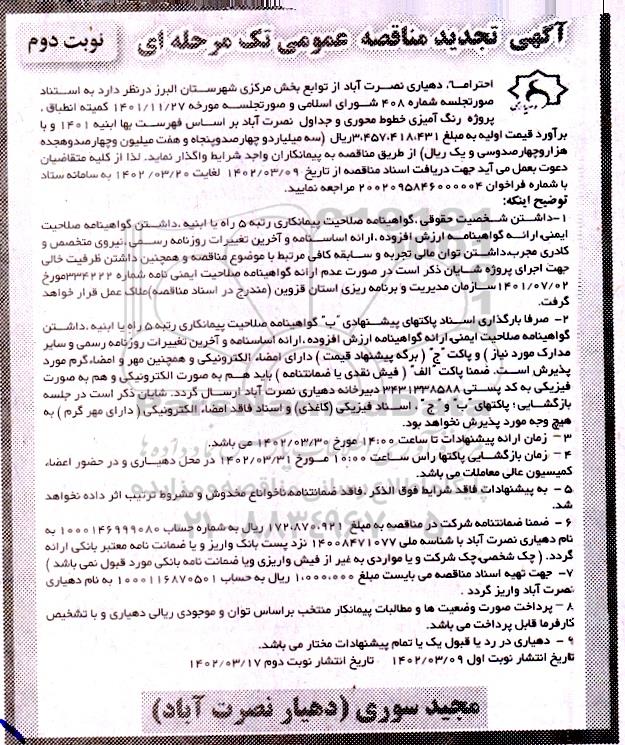 آگهی تجدید مناقصه عمومی تک مرحله ای
نوبت دوم
احتراما"، دهیاری نصرت آباد از توابع بخش مرکزی شهرستان البرز درنظر دارد به استناد
صورتجلسه شماره ۴۰۸ شورای اسلامی و صورتجلسه مورخه ۱۴۰۱/۱۱/۲۷ کمیته انطباق ،
پروژه رنگ آمیزی خطوط محوری و جداول نصرت آباد بر اساس فهرست بها ابنیه ۱۴۰۱ و با
برآورد قیمت اولیه به مبلغ ۳،۴۵۷،۴۱۸،۴۳۱ریال (سه میلیاردو چهارصدوپنجاه و هفت میلیون وچهارصدوهجده
هزاروچهارصدوسی و یک ریال) از طریق مناقصه به پیمانکاران واجد شرایط واگذار نماید. لذا از کلیه متقاضیان
دعوت بعمل می آید جهت دریافت اسناد مناقصه از تاریخ ۱۴۰۲/۰۳/۰۹ لغایت ۱۴۰۲/۰۳/۲۰ به سامانه ستاد
با شماره فراخوان ۲۰۰۲۰۹۵۸۴۶۰۰۰۰۰۴ مراجعه نمایید.
توضیح اینکه:
۱-داشتن شخصیت حقوقی ،گواهینامه صلاحیت پیمانکاری رتبه ۵ راه یا ابنیه ،داشتن گواهینامه صلاحیت
ایمنی،ارائه گواهینامه ارزش افزوده ،ارائه اساسنامه و آخرین تغییرات روزنامه رسمی ،نیروی متخصص و
کادری مجرب،داشتن توان مالی تجربه و سابقه کافی مرتبط با موضوع مناقصه و همچنین داشتن ظرفیت خالی
جهت اجرای پروژه شایان ذکر است در صورت عدم ارائه گواهینامه صلاحیت ایمنی نامه شماره ۳۳۴۲۲۲مورخ
۱۴۰۱/۰۷/۰۲سازمان مدیریت و برنامه ریزی استان قزوین (مندرج در اسناد مناقصه)ملاک عمل قرار خواهد
گرفت.
۲- صرفا بارگذاری اسناد پاکتهای پیشنهادی "ب" گواهینامه صلاحیت پیمانکاری رتبه ۵ راه یا ابنیه ،داشتن
گواهینامه صلاحیت ایمنی، ارائه گواهینامه ارزش افزوده ،ارائه اساسنامه و آخرین تغییرات روزنامه رسمی و سایر
مدارک مورد نیاز ) و پاکت "ج" ( برگه پیشنهاد قیمت ) دارای امضاء الکترونیکی و همچنین مهر و امضاءگرم مورد
پذیرش است. ضمنا پاکت "الف" ( فیش نقدی یا ضمانتنامه ) باید هم به صورت الکترونیکی و هم به صورت
فیزیکی به کد پستی ۳۴۳۱۳۳۸۵۸۸ دبیرخانه دهیاری نصرت آباد ارسال گردد. شایان ذکر است در جلسه
بازگشایی؛ پاکتهای "ب" و "ج" ، اسناد فیزیکی (کاغذی) و اسناد فاقد امضاء الکترونیکی ( دارای مهر گرم ) به
هیچ وجه مورد پذیرش نخواهد بود.
۳- زمان ارائه پیشنهادات تا ساعت ۱۴:۰۰ مورخ ۱۴۰۲/۰۳/۳۰ می باشد.
۴- زمان بازگشایی پاکتها راس ساعت ۱۰:۰۰ مورخ ۱۴۰۲/۰۳/۳۱ در محل دهیاری و در حضور اعضاء
کمیسیون عالی معاملات می باشد.
۵- به پیشنهادات فاقد شرایط فوق الذکر ،فاقد ضمانتنامه،ناخوانا،مخدوش و مشروط ترتیب اثر داده نخواهد
شد.
۶- ضمنا ضمانتنامه شرکت در مناقصه به مبلغ ۱۷۲،۸۷۰،۹۲۱ ریال به شماره حساب ۱۰۰۰۱۴۶۹۹۹۰۸۰ به
نام دهیاری نصرت آباد با شناسه ملی ۱۴۰۰۸۴۷۱۰۷۷ نزد پست بانک واریز و یا ضمانت نامه معتبر بانکی ارائه
گردد. ( چک شخصی،چک شرکت و یا مواردی به غیر از فیش واریزی ویا ضمانت نامه بانکی مورد قبول نمی باشد )
۷- جهت تهیه اسناد مناقصه می بایست مبلغ ۱،۰۰۰،۰۰۰ ریال به حساب ۱۰۰۰۱۱۶۸۷۰۵۰۱ به نام دهیاری
نصرت آباد واریز گردد .
۸- پرداخت صورت وضعیت ها و مطالبات پیمانکار منتخب براساس توان و موجودی ریالی دهیاری و با تشخیص
کارفرما قابل پرداخت می باشد.
۹- دهیاری در رد یا قبول یک یا تمام پیشنهادات مختار می باشد.
تاریخ انتشار نوبت اول ۱۴۰۲/۰۳/۰۹ تاریخ انتشار نوبت دوم ۱۴۰۲/۰۳/۱۷
مجید سوری (دهیار نصرت آباد)